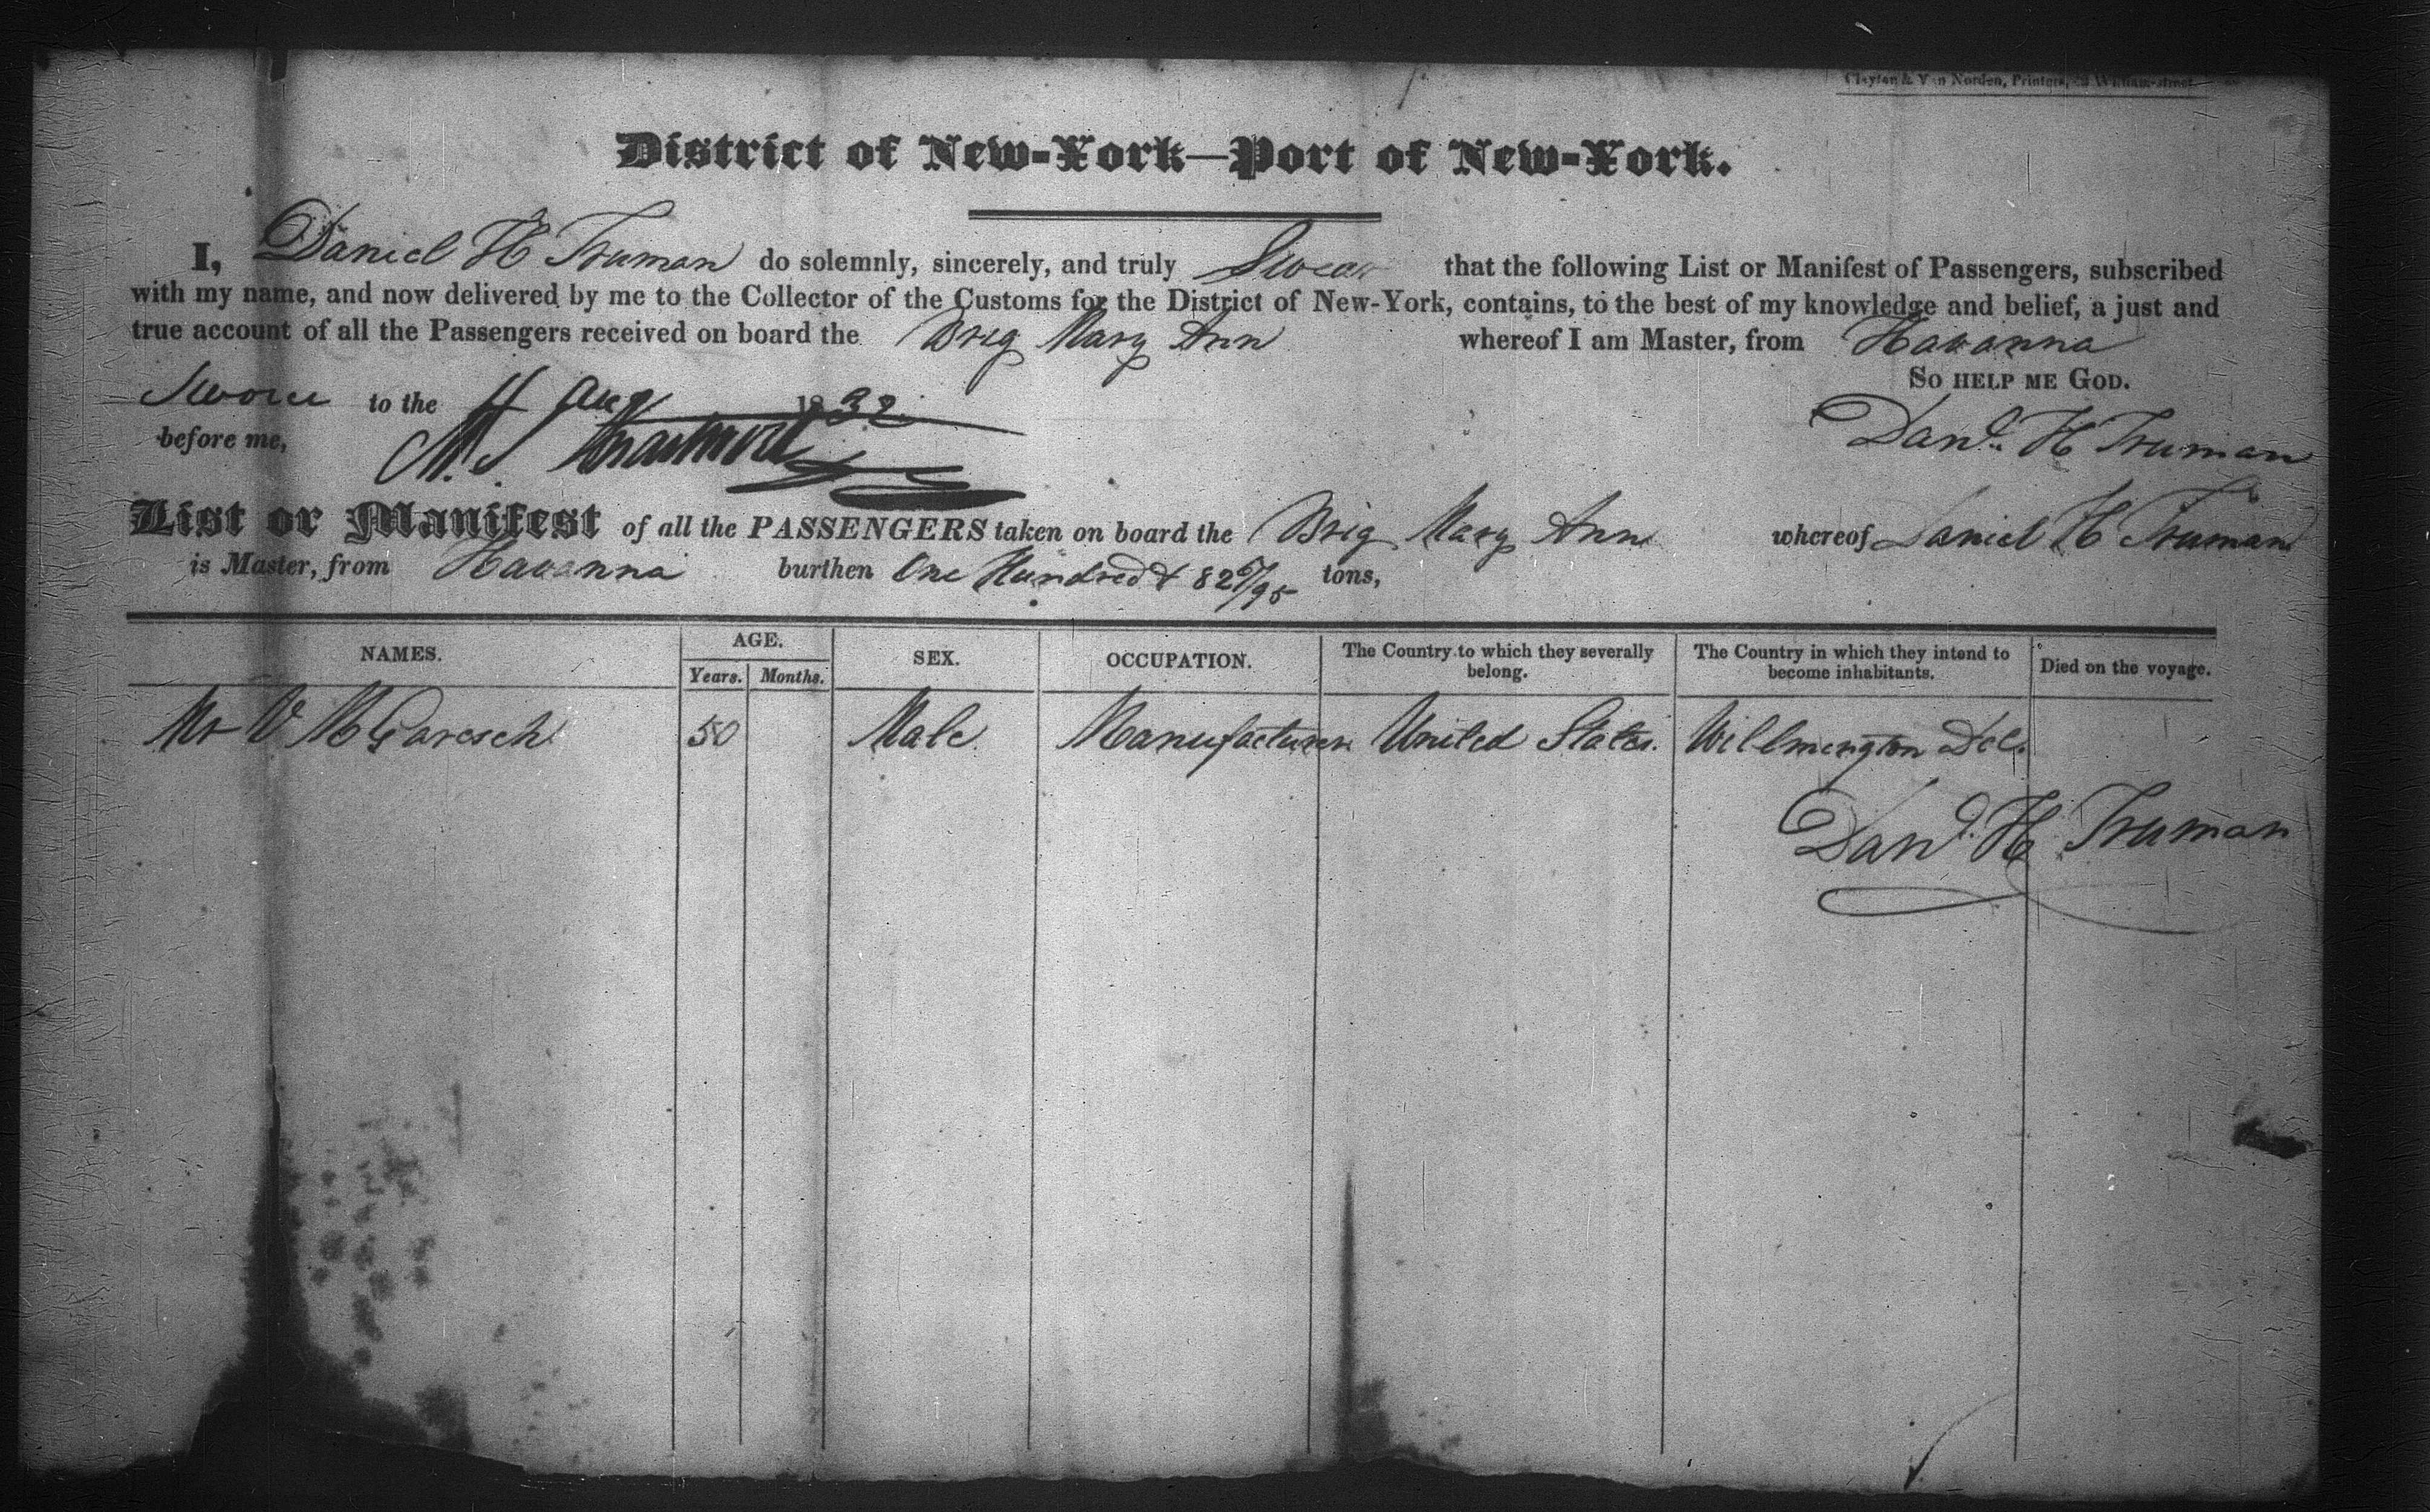 Clayton & Van Norden, Printers, William-street
District of New-York—Port of New-York.
I, Daniel H Truman do solemnly, sincerely, and truly Swear that the following List or Manifest of Passengers, subscribed
with my name, and now delivered by me to the Collector of the Customs for the District of New-York, contains, to the best of my knowledge and belief, a just and
true account of all the Passengers received on board the Brig Mary Ann whereof I am Master, from Havanna
So help me God.
Sworn to the 11 Aug 1832
before me,
Danl. H Truman
List or Manifest of all the PASSENGERS taken on board the Brig Mary Ann whereof Daniel H Truman
is Master, from Havanna burthen One Hundred & 82 /95 tons,
NAMES. AGE. Years. Months. SEX. OCCUPATION. The Country to which they severally belong. The Country in which they intend to become inhabitants. Died on the voyage.
Mr V M Garesch 50 Male. Manufacturer United States. Willmington Del.
Danl. H Truman